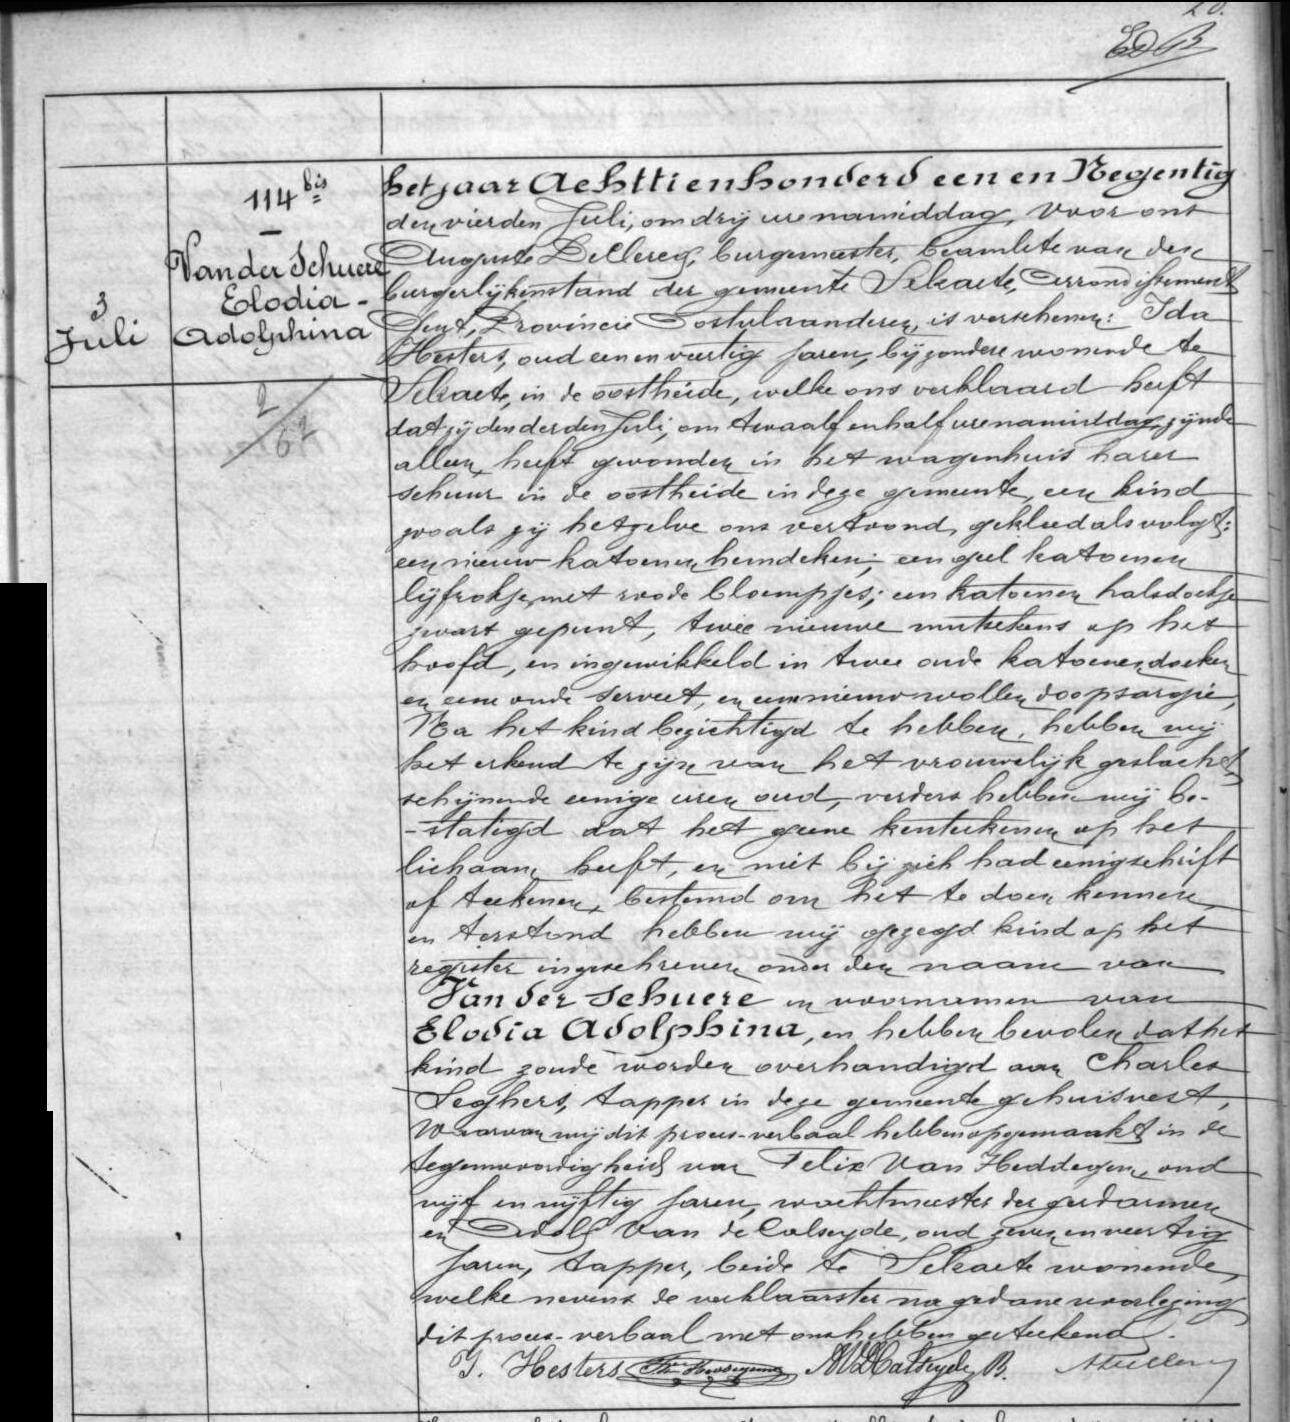 20.
EDB
114 bis
Van der Schuere
Elodia -
Adolphina
3
Juli
2/67
het jaar Achttienhonderd een en Negentig
den vierden Juli, om drij ure namiddag, voor ons
Auguste DeClercq, burgemeester, beambte van den
burgerlijkenstand der gemeente Selzaete, Arrondissement
Gent, Provincie Oostvlaanderen, is verschenen: Ida
Hesters, oud een en veertig jaren, bijzondere wonende te
Selzaete, in de oostheide, welke ons verklaard heeft
dat zij den derden Juli, om twaalf en half ure namiddag, zijnde
alleen, heeft gevonden in het wagenhuis harer
schuur in de oostheide in deze gemeente, een kind
zooals zij hetzelve ons vertoond, gekleed als volgt:
een nieuw katoenen hemdeken; een geel katoenen
lijfrokje met roode bloempjes; een katoenen halsdoekje
zwart gepunt, twee nieuwe mutsekens op het
hoofd, en ingewikkeld in twee oude katoenen doeken
en eene oude serveet, en een nieuw wollen doopsargie,
Na het kind bezichtigd te hebben, hebben wij
het erkend te zijn van het vrouwelijk geslacht,
schijnende eenige uren oud, verders hebben wij be-
-statigd dat het geene kenteekenen op het
lichaam heeft, en niet bij zich had eenig schrift
of teekenen, bestemd om het te doen kennen,
en terstond hebben wij gezegd kind op het
register ingeschreven onder den naam van
Van der Schuere en voornamen van
Elodia Adolphina, en hebben bevolen dat het
kind zoude worden overhandigd aan Charles
Seghers, tapper in deze gemeente gehuisvest,
Waarvan wij dit proces-verbaal hebben opgemaakt in de
tegenwoordigheid van Felix Van Heddegem, oud
vijf en vijftig jaren, wachtmeester der gendarmen
en Adolf Van de Calseyde, oud zeven en veertig
jaren, tapper, beide te Selzaete wonende,
welke nevens de verklaarster na gedane voorlezing
dit proces-verbaal met ons hebben geteekend.
I. Hesters